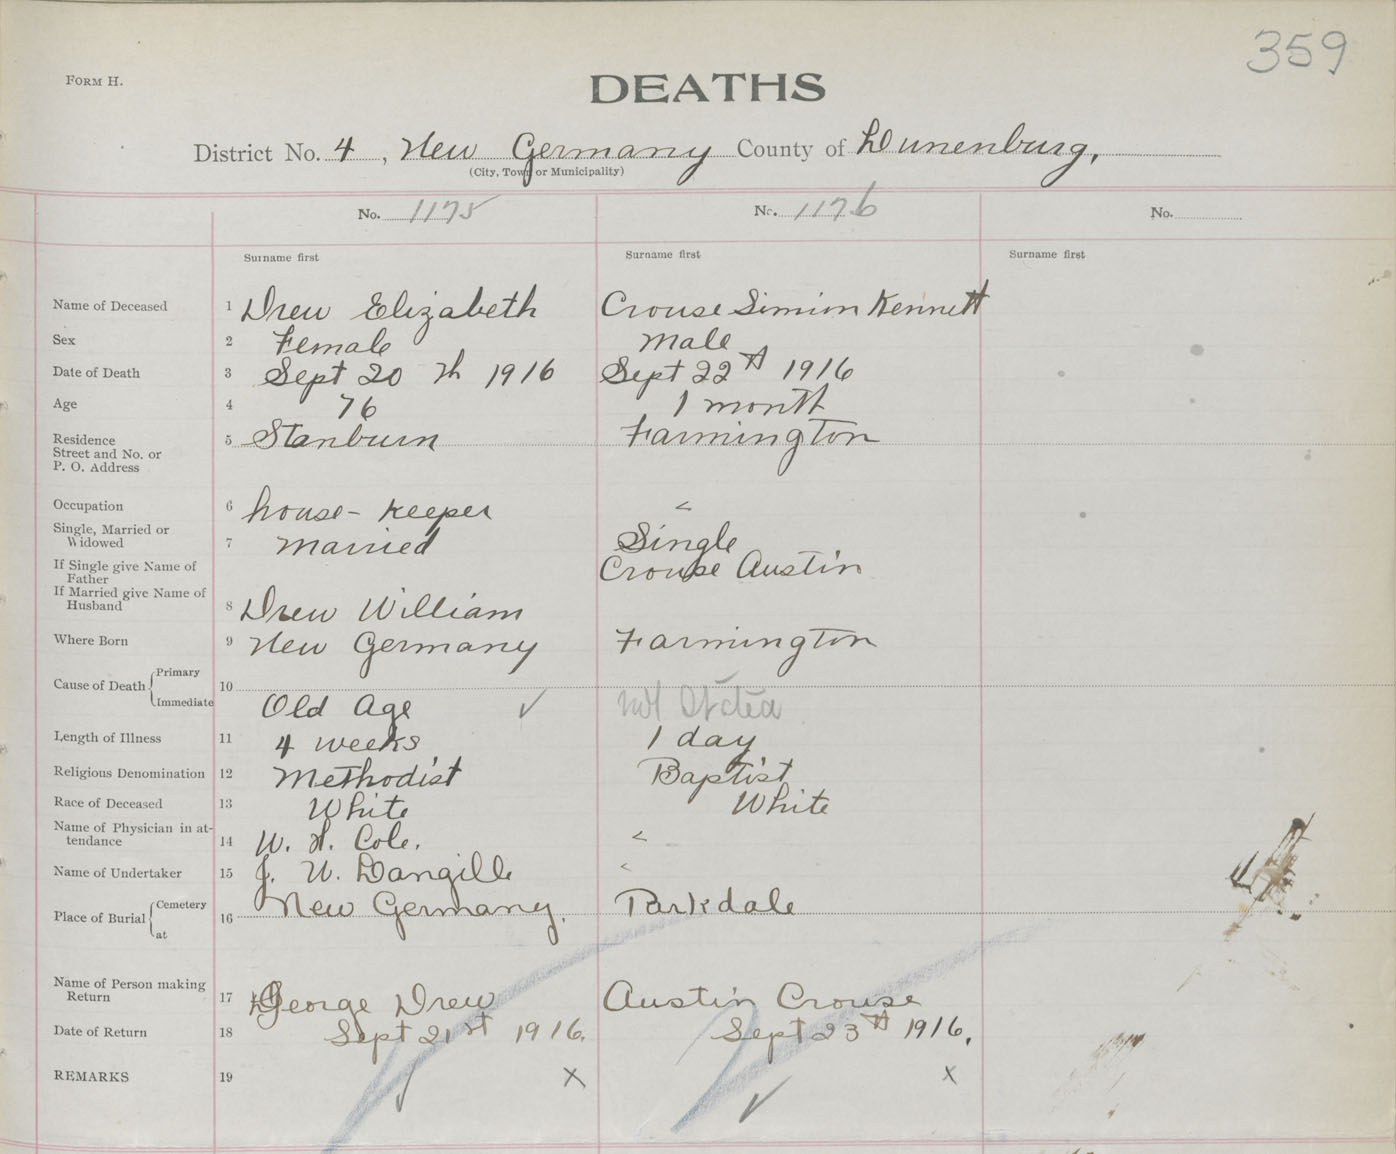 359
FORM H.
DEATHS
District No. 4, New Germany County of Lunenburg,
(City, Town or Municipality)
No. 1175 No. 1176 No.
Surname first Surname first Surname first
Name of Deceased 1 Drew Elizabeth Crouse Simion Kennett
Sex 2 Female Male
Date of Death 3 Sept 20 th 1916 Sept 22th 1916
Age 4 76 1 month
Residence 5 Stanburn Farmington
Street and No. or
P. O. Address
Occupation 6 house-keeper
Single, Married or
Widowed 7 Married Single
If Single give Name of
Father Crouse Austin
If Married give Name of
Husband 8 Drew William
Where Born 9 New Germany Farmington
Cause of Death { Primary
10
Immediate Old Age ✓ not Stated
Length of Illness 11 4 weeks 1 day
Religious Denomination 12 Methodist Baptist
Race of Deceased 13 White White
Name of Physician in at-
tendance 14 W. H. Cole.
Name of Undertaker 15 J. W.
Place of Burial { Cemetery New Germany. Parkdale
16
at
Name of Person making
Return 17 George Drew Austin Crouse
Date of Return 18 Sept 21st 1916. Sept 23th 1916.
REMARKS 19 ✓ X ✓ X